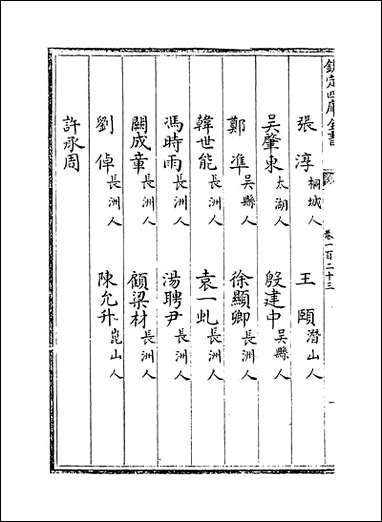 欽定四庫全書
卷一百二十三
張淳桐城人 王頤潛山人
吳肇東太湖人 殷建中吳縣人
鄭準吳縣人 徐顯卿長洲人
韓世能長洲人 袁一虬長洲人
馮時雨長洲人 湯聘尹長洲人
關成章長洲人 顧梁材長洲人
劉倬長洲人 陳允升崑山人
許承周